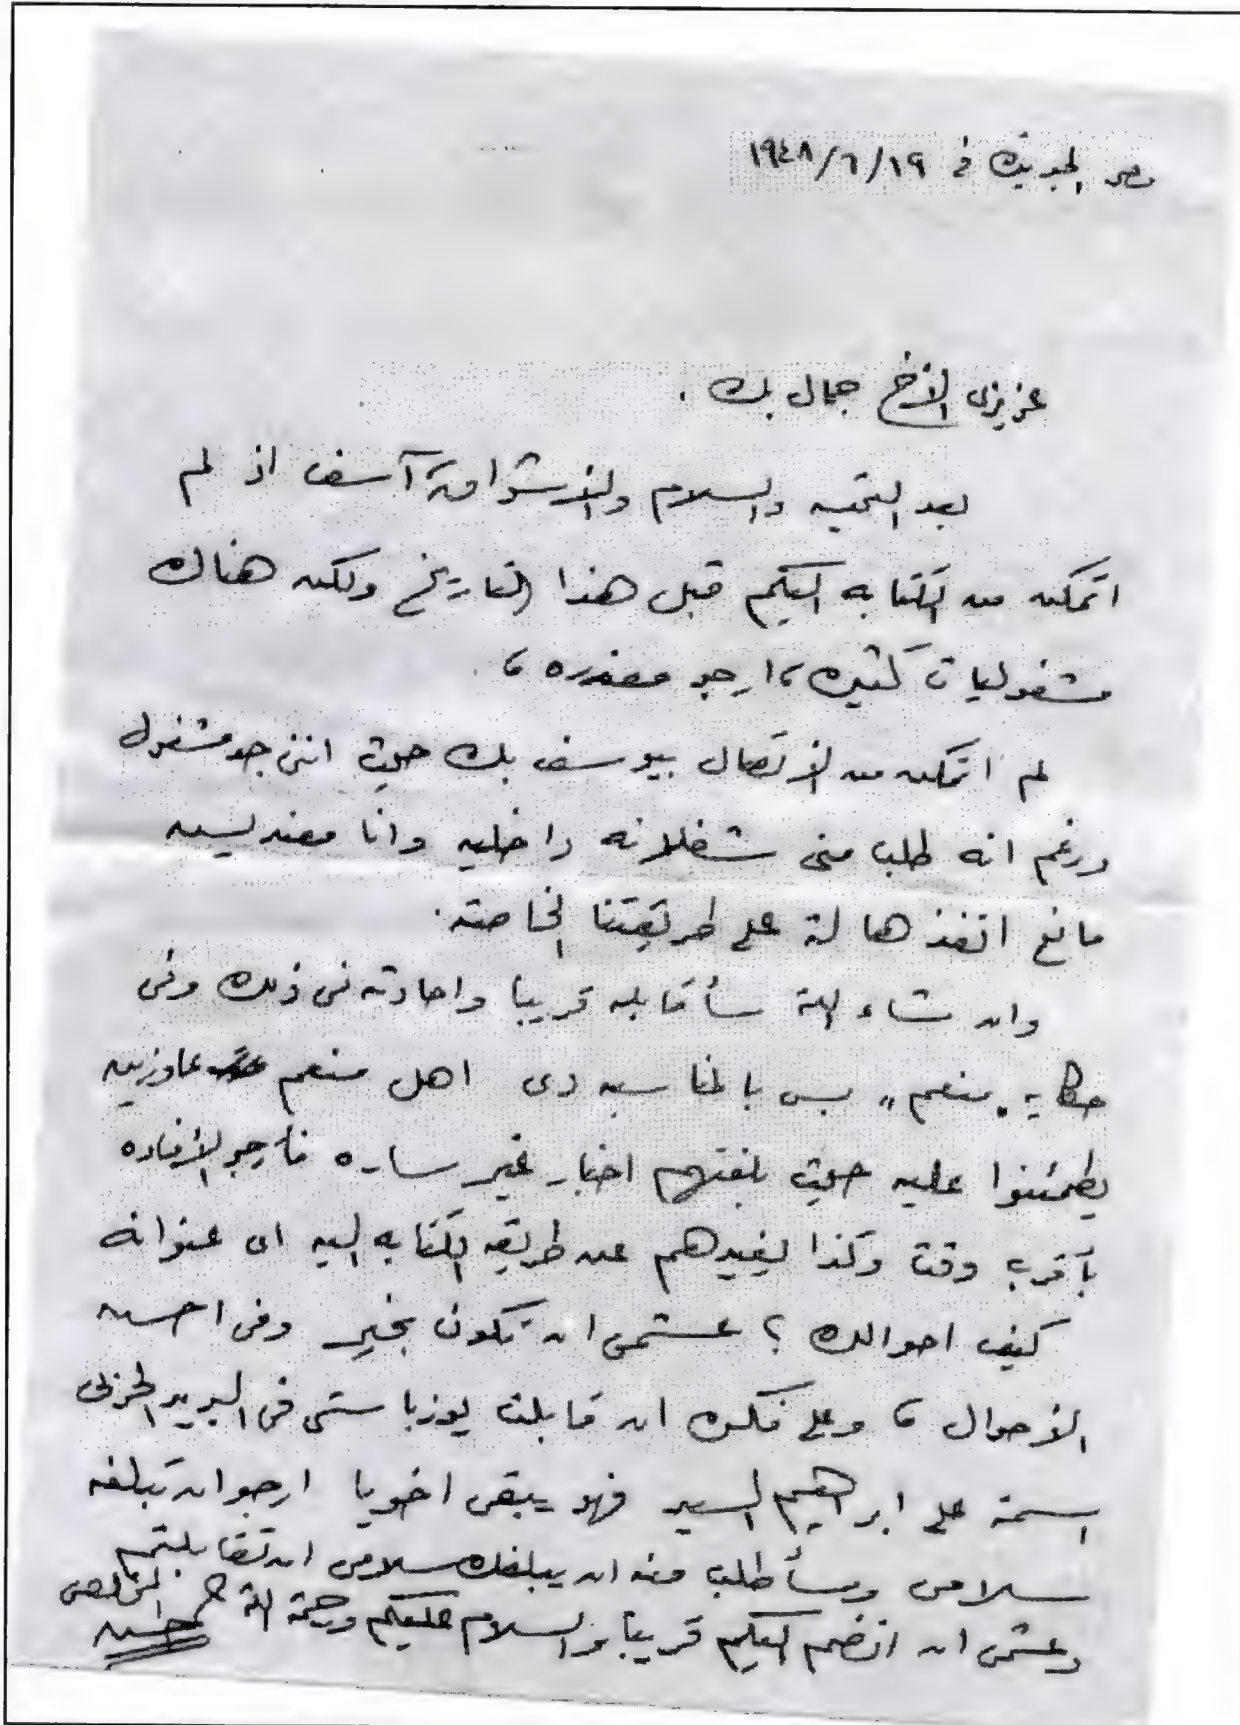 مصر الجديده في ١٩/٦/١٩٤٨
عزيزى الأخ جمال بك .
بعد التحيه والسلام والأشواق، آسف اذ لم
اتمكن من الكتابه اليكم قبل هذا التاريخ ولكن هناك
مشغوليات كثيره، ارجو معذره ،
لم اتمكن من الأتصال بيوسف بك حيث اننى جد مشغول
ورغم انه طلب منى شغلانه داخليه وانا معنديش
مانع انفذها لة على طريقتنا الخاصة.
وان شاء الله سأقابله قريبا واحادثه فى ذلك وفى
حكاية "منعم" بس بالمناسبه دى اهل منعم عاوزين
يطمئنوا عليه حيث بلغتهم اخبار غير ساره فأرجو الأفاده
بأقرب وقت وكذا يفيدهم عن طريقه الكتابه اليه اى عنوانه
كيف احوالك ؟ عشمى ان تكون بخير وفى احسن
الأحوال ، وعلى فكره ان قابلت يوزباشى فى البريد الحربى
اسمة على ابراهيم السيد فهو يبقى اخويا ارجو ان تبلغه
سلامى وسأطلب منه ان يبلغك سلامى ان تقابلتم
وعشمى ان انضم اليكم قريبا والسلام عليكم ورحمة الله المخلص
حسن